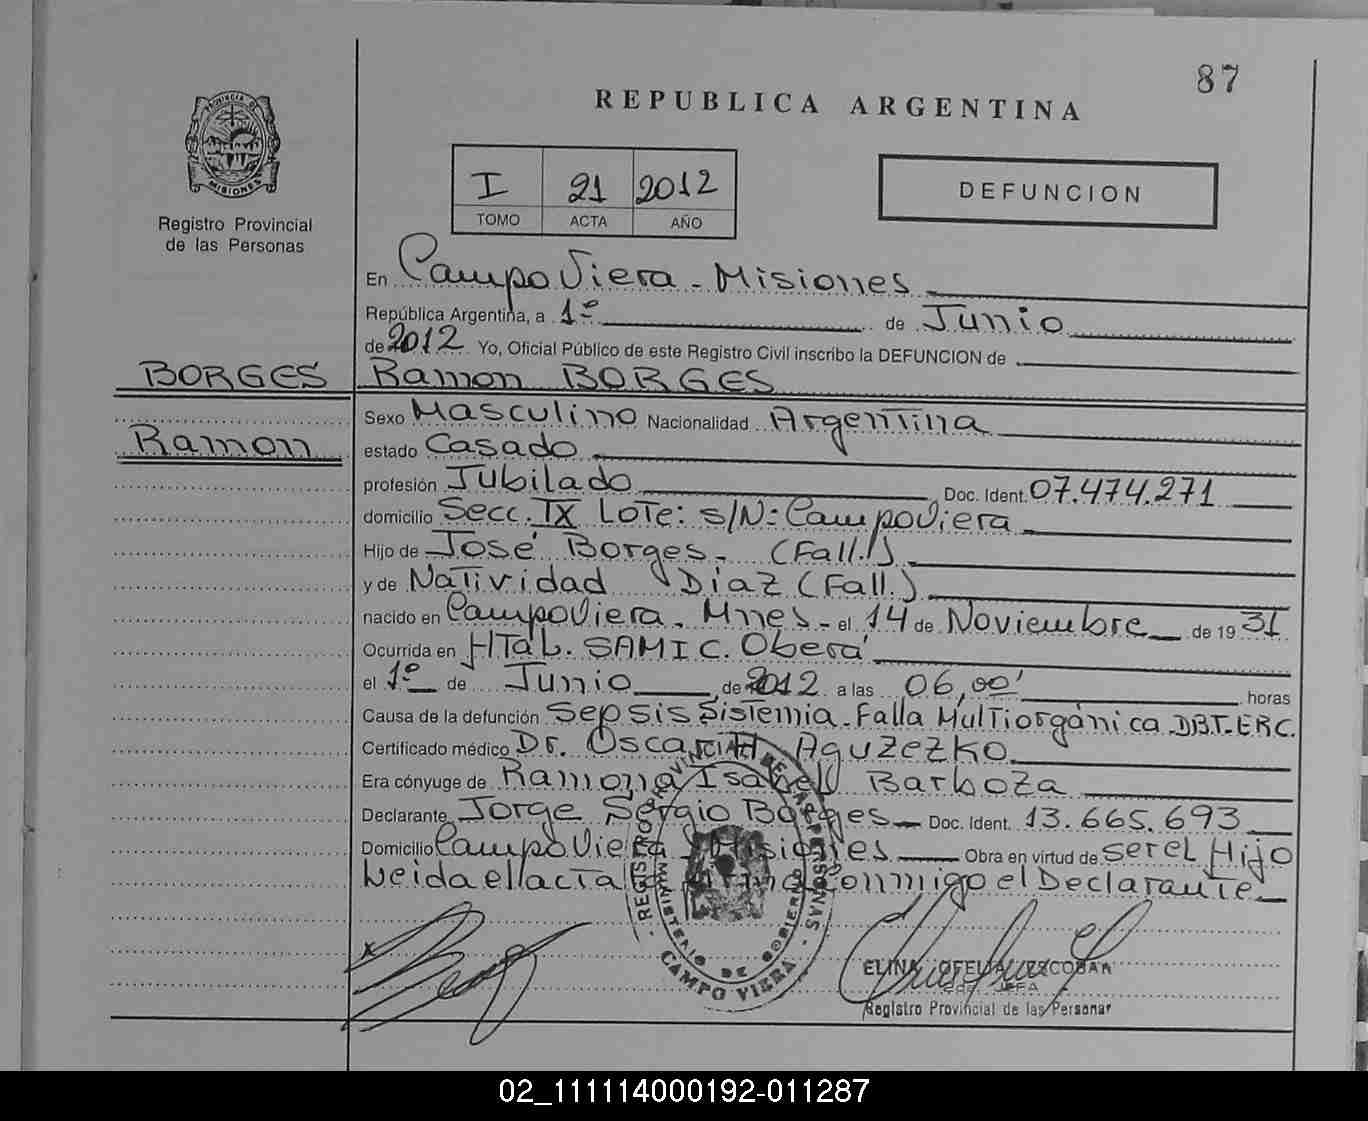 87
REPUBLICA ARGENTINA
PROVINCIA DE MISIONES
I 21 2012
TOMO ACTA AÑO
DEFUNCION
Registro Provincial
de las Personas
En Campo Viera - Misiones
República Argentina, a 1º de Junio
de 2012 Yo, Oficial Público de este Registro Civil inscribo la DEFUNCION de
BORGES Ramon BORGES
Sexo Masculino Nacionalidad Argentina
Ramon estado Casado
profesión Jubilado Doc. Ident. 07.474.271
domicilio Secc. IX Lote: s/N: Campo Viera
Hijo de José Borges - (Fall.)
y de Natividad Diaz (Fall.)
nacido en Campo Viera. Mnes - el 14 de Noviembre de 19 31
Ocurrida en HTal. SAMIC. Oberá
el 1º de Junio de 2012 a las 06,00' horas
Causa de la defunción Sepsis Sistemia - Falla Multiorgánica DBT-ERC.
Certificado médico Dr. Oscar H. Aguzezko
Era cónyuge de Ramona Isabel Barboza
Declarante Jorge Sergio Borges Doc. Ident. 13.665.693
Domicilio Campo Viera Misiones Obra en virtud de ser el Hijo
Leida el acta la firma conmigo el Declarante
REGISTRO PROVINCIAL DE LAS PERSONAS
MINISTERIO DE GOBIERNO
CAMPO VIERA
x
ELINA OFELIA ESCOBAR
JEFA
Registro Provincial de las Personas
02_111114000192-011287